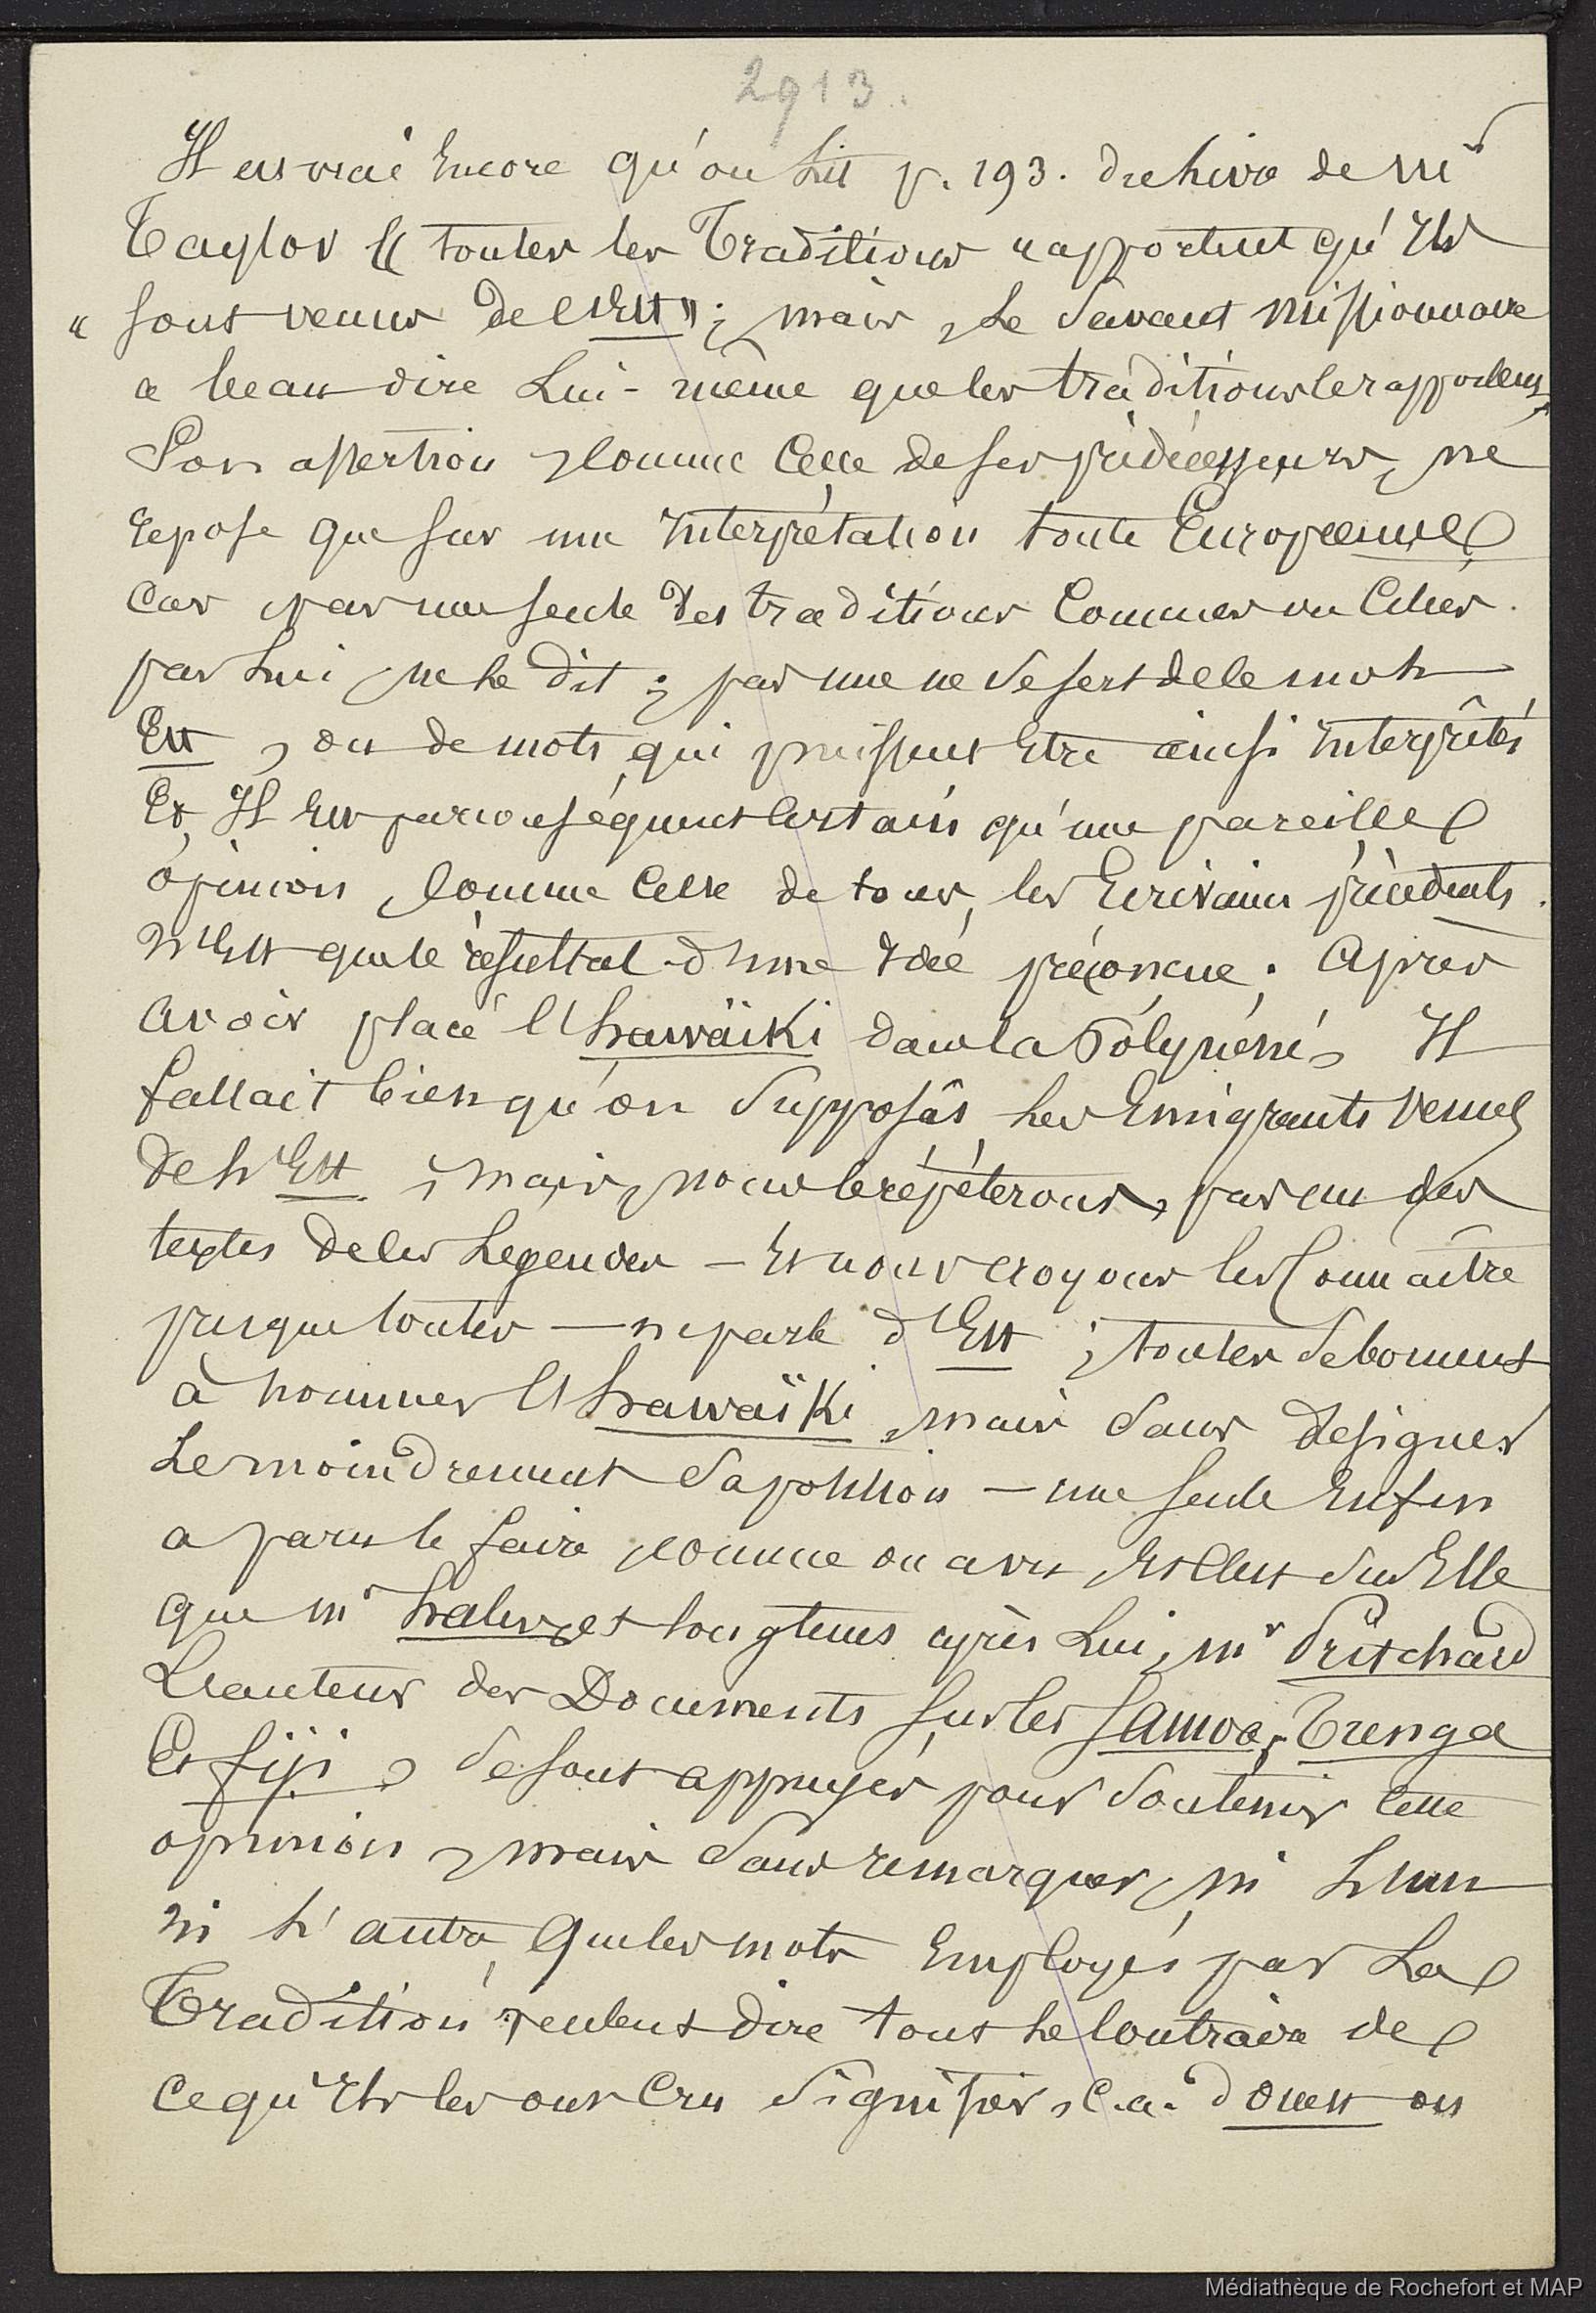 2913.
Il est vrai encore qu'on lit p. 193. du livre de Mr
Taylor "toutes les Traditions rapportent qu'Ils
" sont venus de l'Est"; mais, le savant missionnaire
a beau dire lui-même que les traditions le rapportent,
son assertion, comme celle de ses prédécesseurs, ne
repose que sur une interprétation toute Européenne,
car pas une seule des traditions connues ou citées
par lui, ne le dit; pas une ne se sert de ce mot
Est, ou de mots qui puissent être ainsi interprêtés
Et, Il est par conséquent certain qu'une pareille
opinion, comme celle de tous les Ecrivains précédents
n'Est que le résultat d'une Idée préconcue. Après
avoir placé l'hawaïki dans la Polynésie, Il
fallait bien qu'on supposâs les Emigrants venus
de l'Est; mais, nous le répéterons, pas un des
textes de les Legendes — Et nous croyons les Connaître
presque toutes — ne parle d'Est; toutes se bornent
à nommer l'hawaïki, mais sans designer
le moindrement sa position — une seule enfin
a paru le faire comme on a vu, Et c'est sur Elle
que Mr hales, et longtems après lui, Mr Pritchard
L'auteur des Documents sur les Samoa, Tonga
Et fiji, se sont appuyés pour soutenir cette
opinion, mais sans remarquer, ni l'un
ni l'autre, que les mots Employés par La
Tradition veulent dire tout le contraire de
ce qu'Ils les ont cru signifier, c.a.d ouest ou
Médiathèque de Rochefort et MAP